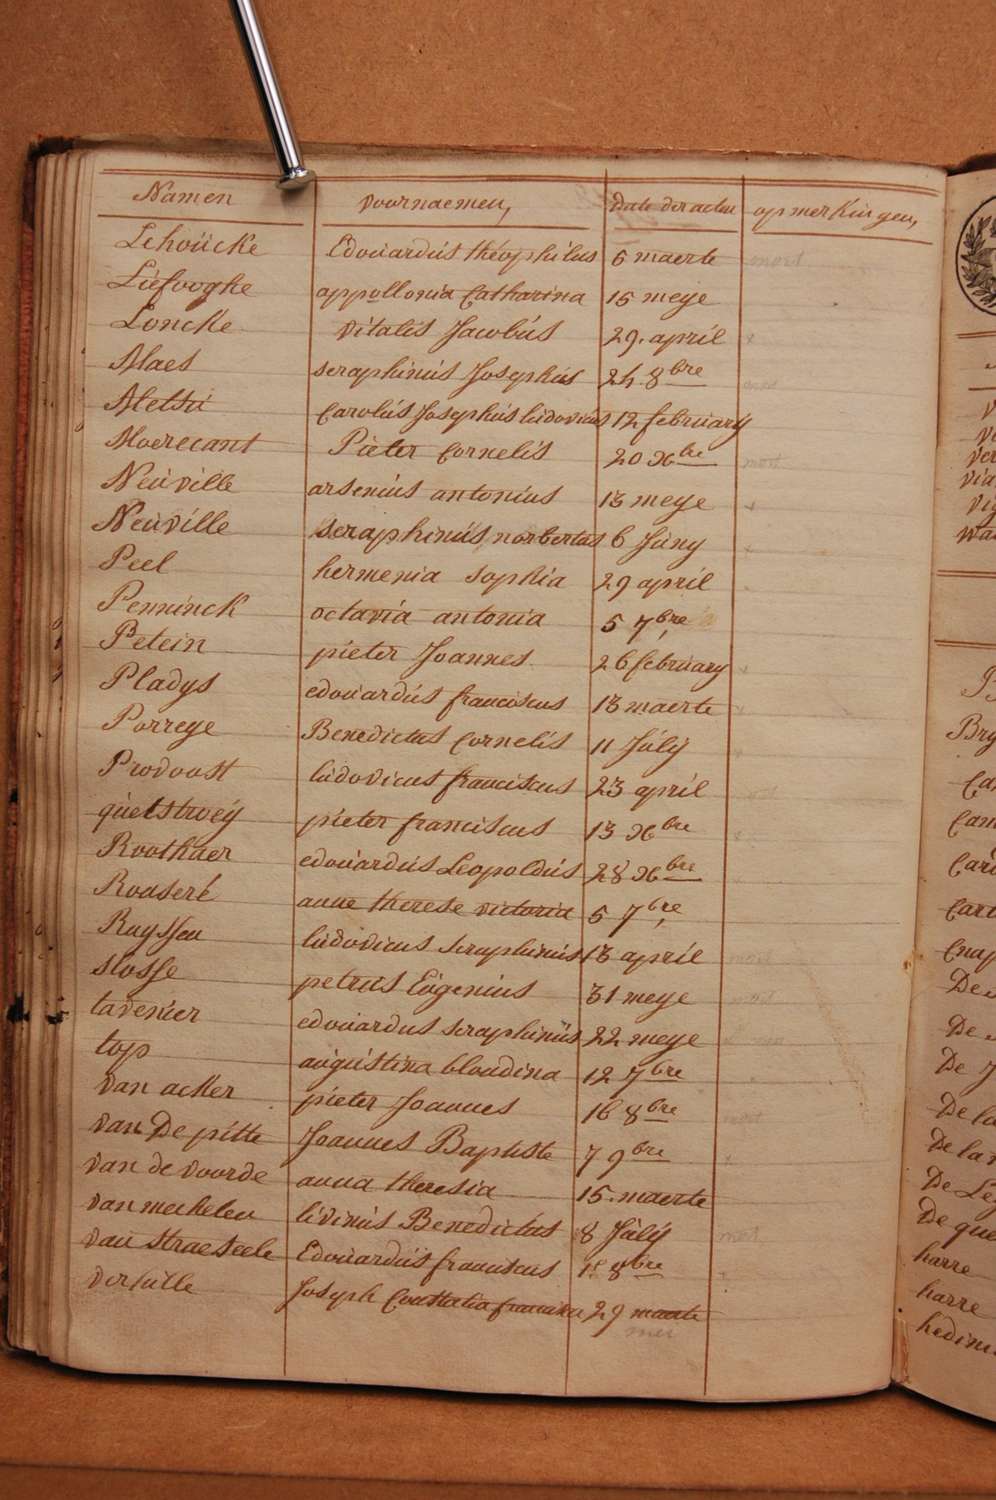 Namen voornaemen, date der acten opmerkingen,
Lehoücke Edoüardüs théophilus 6 maerte mort
Liefooghe appollonia Catharina 15 meye
Loncke vitalis Jacobüs 29. april
Maes seraphinüs Josephüs 24 8bre
Metsü Carolüs Josephüs lüdovicus 12 february
Moerecant Pieter Cornelis 20 Xbre mort
Neüville arsenius antonius 13 meye
Neüville seraphinüs norbertus 6 Jüny
Peel hermenia sophia 29 april
Penninck octavia antonia 5 7bre
Petein pieter Joannes 26 february
Pladys edoüardüs franciscus 13 maerte
Porreye Benedictus Cornelis 11 Jülÿ
Provoost lüdovicus franciscus 23 april
qüetstroeÿ pieter franciscus 13 Xbre
Roothaer edoüardus Leopoldüs 28 Xbre
Rouseré anne therese victoria 5 7bre
Ruyssen lüdovicus seraphinüs 13 april mort
slosse petrus Eügenius 31 meye
tavenier edoüardus seraphinüs 22 meye
top aügüstina blondina 12 7bre
van acker pieter Joannes 16 8bre mort
van De pitte Joannes Baptiste 7 9bre
van de voorde anna theresia 15. maerte
van mechelen livinüs Benedictus 8 Jülÿ mort
van straeseele Edoüardüs franciscus 18 8bre
verhille Joseph 29 maerte
mei